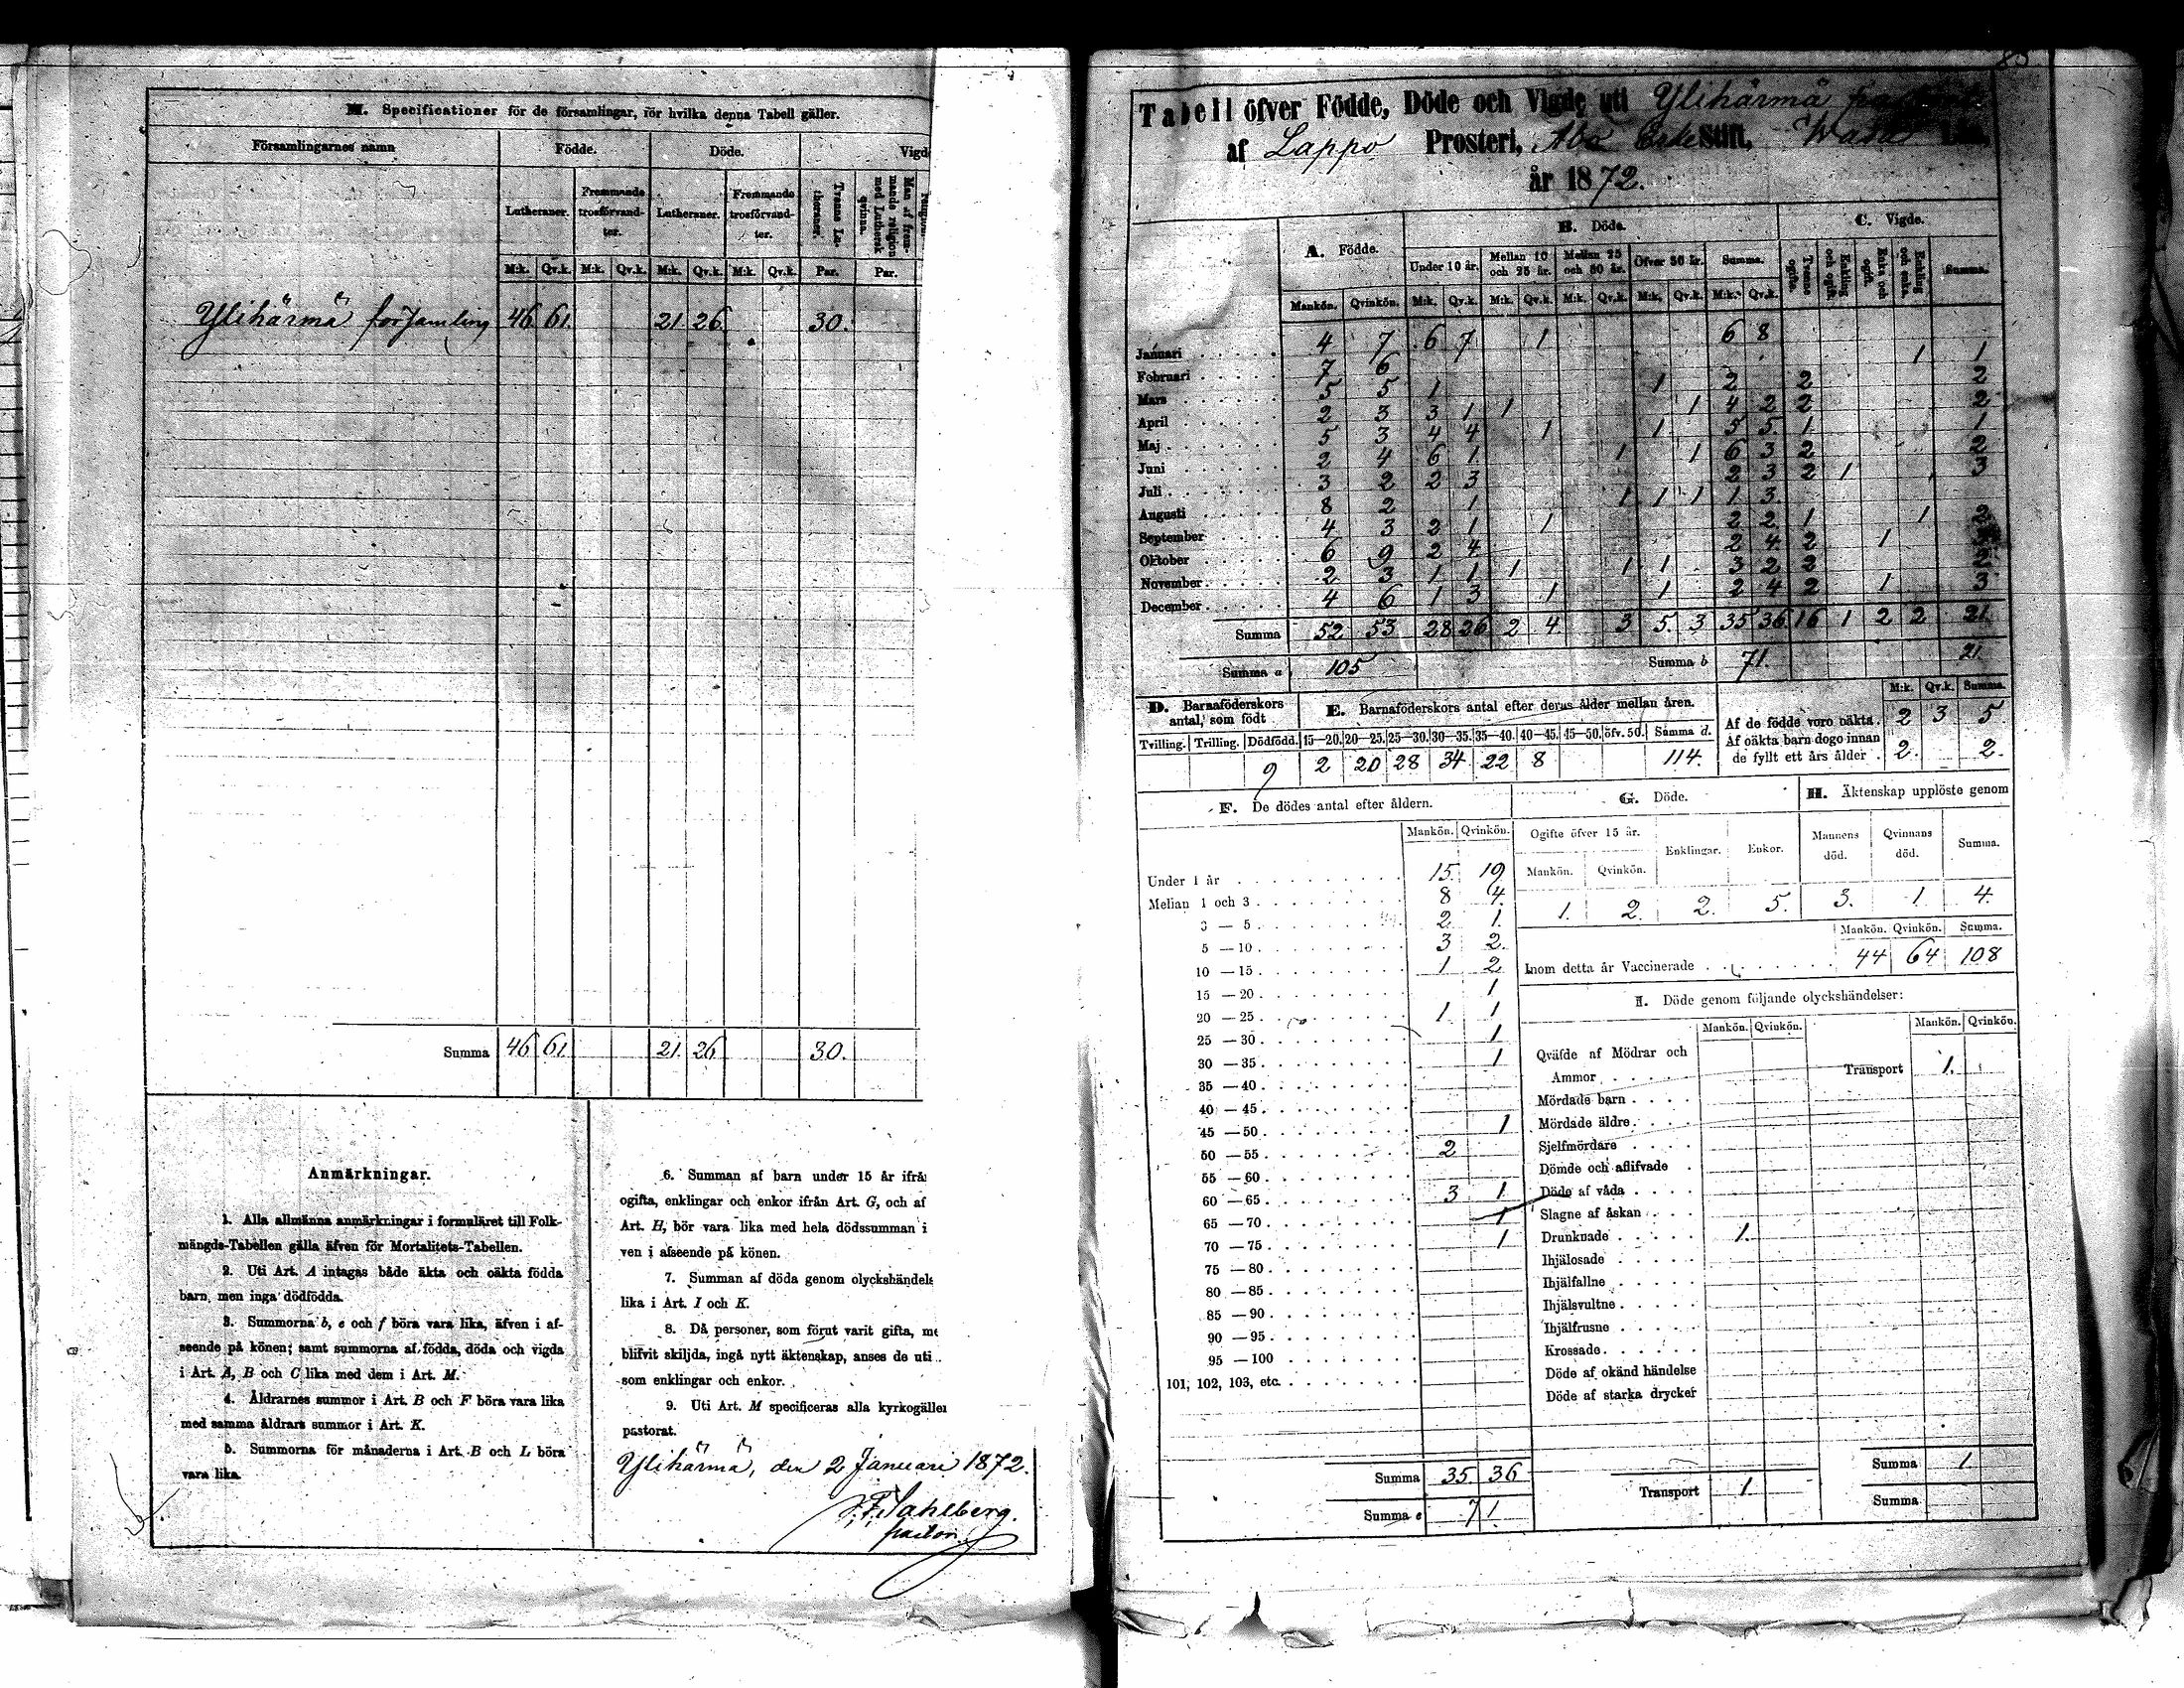 M. Specificationer för de församlingar, för hvilka denna Tabell gäller.
Församlingarnes namn Födde. Döde. Vigd
Lutheraner. Fremmande trosförvandter. Lutheraner. Fremmande trosförvandter. Tvenne Lutheraner. Man af fremmande religion med Luthersk qvinna.
M:k. Qv.k. M:k. Qv.k. M:k. Qv.k. M:k. Qv.k. Par. Par.
Ylihärmä församling 46 61. 21. 26. 30.
Summa 46 61. 21. 26 30.
Anmärkningar.
1. Alla allmänna anmärkningar i formuläret till Folk-
mängds-Tabellen gälla äfven för Mortalitets-Tabellen.
2. Uti Art. A intagas både äkta och oäkta födda
barn, men inga dödfödda.
3. Summorna b, e och f böra vara lika, äfven i af-
seende på könen; samt summorna af födda, döda och vigda
i Art. A, B och C lika med dem i Art. M.
4. Åldrarnes summor i Art. B och F böra vara lika
med samma åldrars summor i Art. K.
5. Summorna för månaderna i Art. B och L böra
vara lika.
6. Summan af barn under 15 år ifrå
ogifta, enklingar och enkor ifrån Art. G, och af
Art. H, bör vara lika med hela dödssumman i
ven i afseende på könen.
7. Summan af döda genom olyckshändels
lika i Art. I och K.
8. Då personer, som förut varit gifta, me
blifvit skiljda, ingå nytt äktenskap, anses de uti
som enklingar och enkor.
9. Uti Art. M specificeras alla kyrkogäller
pastorat.
Ylihärmä, den 2 Januari 1872.
Sahlberg.
pastor.
85
Tabell öfver Födde, Döde och Vigde uti Ylihärmä
af Lappo Prosteri, Åbo Erke Stift, Wasa Län,
år 1872.
A. Födde. B. Döde. C. Vigde.
Under 10 år. Mellan 10 och 25 år. Mellan 25 och 50 år. Öfver 50 år. Summa. Tvenne ogifte. Enkling och ogift. Enka och ogift. Enkling och enka. Summa.
Mankön. Qvinkön. M:k. Qv.k. M:k. Qv.k. M:k. Qv.k. M:k. Qv.k. M:k. Qv.k.
Januari 4 7 6 7 1 6 8
Februari 7 6 1 1
Mars 5 5 1 1 2 2 2
April 2 3 3 1 1 1 4 2 2 2
Maj 5 3 4 4 1 1 5 5 1 1
Juni 2 4 6 1 1 1 6 3 2 2
Juli 3 2 2 3 2 3 2 1 3
Augusti 8 2 1 1 1 1 1 3
September 4 3 2 1 1 2 2 1 1 2
Oktober 6 9 2 4 2 4 2 1
November 2 3 1 1 1 1 1 3 2 2 2
December 4 6 1 3 1 1 2 4 2 1 3
Summa 52 53 28 26 2 4 3 5 3 35 36 16 1 2 2 21.
Summa a 105 Summa b 71. 21.
D. Barnaföderskors antal, som födt
Tvilling. Trilling. Dödfödd.
9
E. Barnaföderskors antal efter deras ålder mellan åren.
15—20. 20—25. 25—30. 30—35. 35—40. 40—45. 45—50. öfv. 50. Summa d.
2 20 28 34 22 8 114.
M:k. Qv.k. Summa.
Af de födde voro oäkta. 2 3 5
Af oäkta barn dogo innan
de fyllt ett års ålder 2. 2.
F. De dödes antal efter åldern.
Mankön. Qvinkön.
Under 1 år 15. 19
Mellan 1 och 3 8 4.
3 — 5 2 1.
5 — 10 3 2.
10 — 15 1 2
15 — 20 1
20 — 25 1 1
25 — 30 1
30 — 35 1
35 — 40
40 — 45
45 — 50 1
50 — 55 2
55 — 60
60 — 65 3 1
65 — 70 1
70 — 75 1
75 — 80
80 — 85
85 — 90
90 — 95
95 — 100
101, 102, 103, etc.
Summa 35 36
Summa e 71.
G. Döde.
Ogifte öfver 15 år. Enklingar. Enkor.
Mankön. Qvinkön.
1. 2. 2. 5.
H. Äktenskap upplöste genom
Mannens död. Qvinnans död. Summa.
3. 1. 4.
Mankön. Qvinkön. Summa.
Inom detta år Vaccinerade 44 64 108
I. Döde genom följande olyckshändelser:
Mankön. Qvinkön. Mankön. Qvinkön.
Qväfde af Mödrar och
Ammor
Transport 1.
Mördade barn
Mördade äldre
Sjelfmördare
Dömde och aflifvade
Döde af våda
Slagne af åskan
Drunknade 1.
Ihjälosade
Ihjälfallne
Ihjälsvultne
Ihjälfrusne
Krossade
Döde af okänd händelse
Döde af starka drycker
Transport 1.
Summa 1
Summa